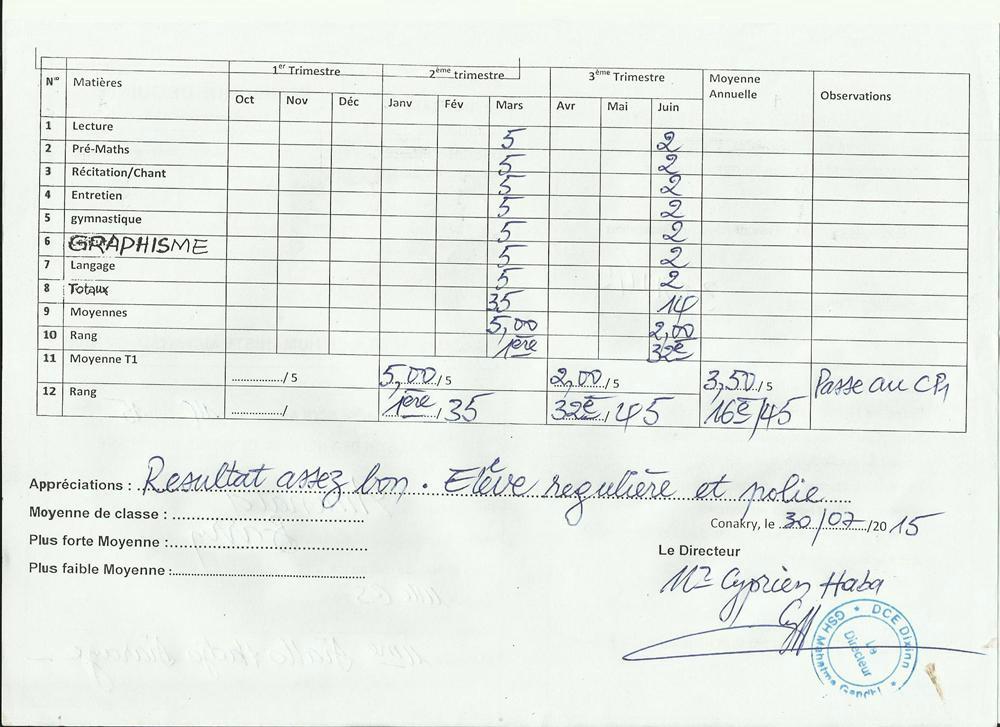 N° Matières 1er Trimestre 2ème trimestre 3ème Trimestre Moyenne Annuelle Observations
Oct Nov Déc Janv Fév Mars Avr Mai Juin
1 Lecture 5 2
2 Pré-Maths 5 2
3 Récitation/Chant 5 2
4 Entretien 5 2
5 gymnastique 5 2
6 GRAPHISME 5 2
7 Langage 5 2
8 Totaux 35 14
9 Moyennes 5,00 2,00
10 Rang 1ère 32è
11 Moyenne T1 ................/ 5 5,00/ 5 2,00/ 5 3,50/ 5 Passe au CP1
12 Rang ................/ 1ère/ 35 32è/ 45 16è/45
Appréciations : Resultat assez bon. Elève regulière et polie
Moyenne de classe : ..............................
Conakry, le 30/07/20 15
Plus forte Moyenne :..............................
Le Directeur
Plus faible Moyenne :..............................
Mr Cyprien Haba
DCE Dixinn * GSH Mahatma Gandhi *
Le Directeur